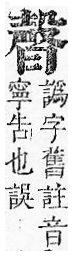 譌字舊註音
寧告也誤